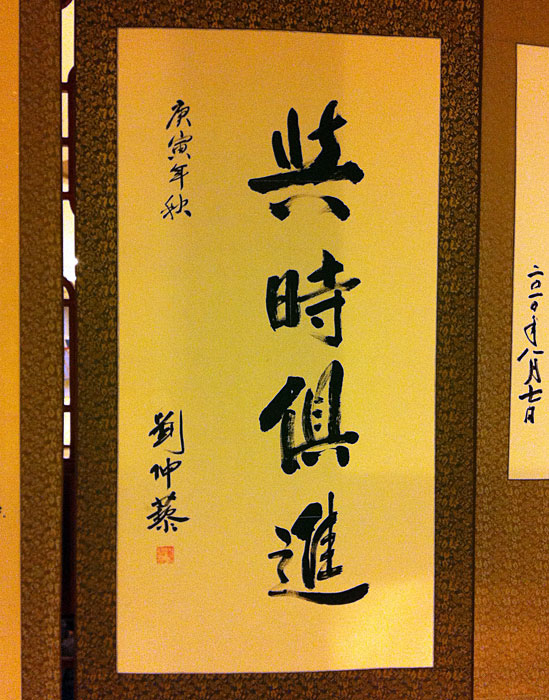 與時俱進
庚寅年秋
劉仲藜
二〇一〇年八月七日